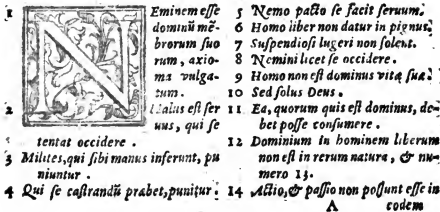 1 NEminem esse
dominũ mẽ-
brorum suo
rum, axio-
ma vulga-
tum.
2 Malus est ser
uus, qui se
tentat occidere.
3 Milites, qui sibi manus inferunt, pu
niuntur.
4 Qui se castrandũ præbet, punitur.
5 Nemo pacto se facit seruum.
6 Homo liber non datur in pignus.
7 Suspendiosi lugeri non solent.
8 Nemini licet se occidere.
9 Homo non est dominus vitæ suæ.
10 Sed solus Deus.
11 Ea, quorum quis est dominus, de-
bet posse consumere.
12 Dominium in hominem liberum
non est in rerum natura, & nu-
mero 13.
14 Actio, & passio non possunt esse in
A codem